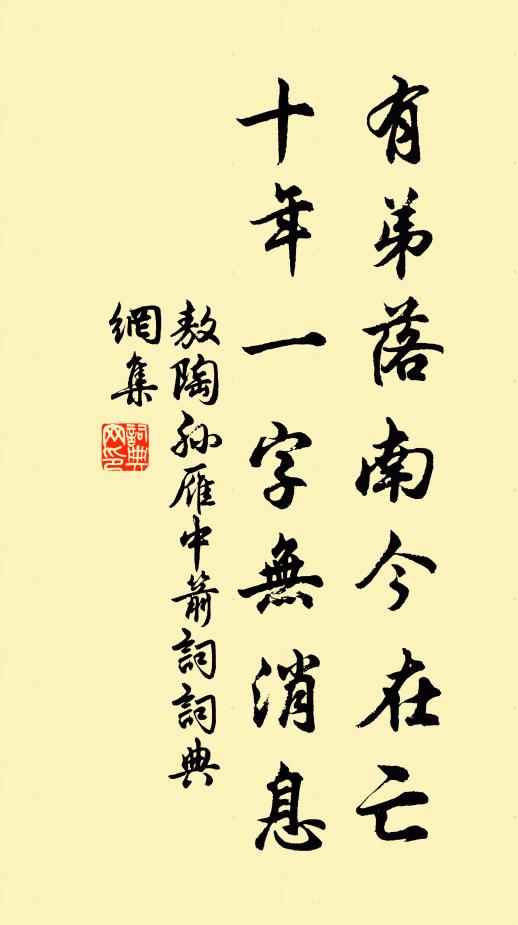 有弟落南今在亡
十年一字無消息
敖陶孙雁中箭詞詞典
網集
詞典
网印